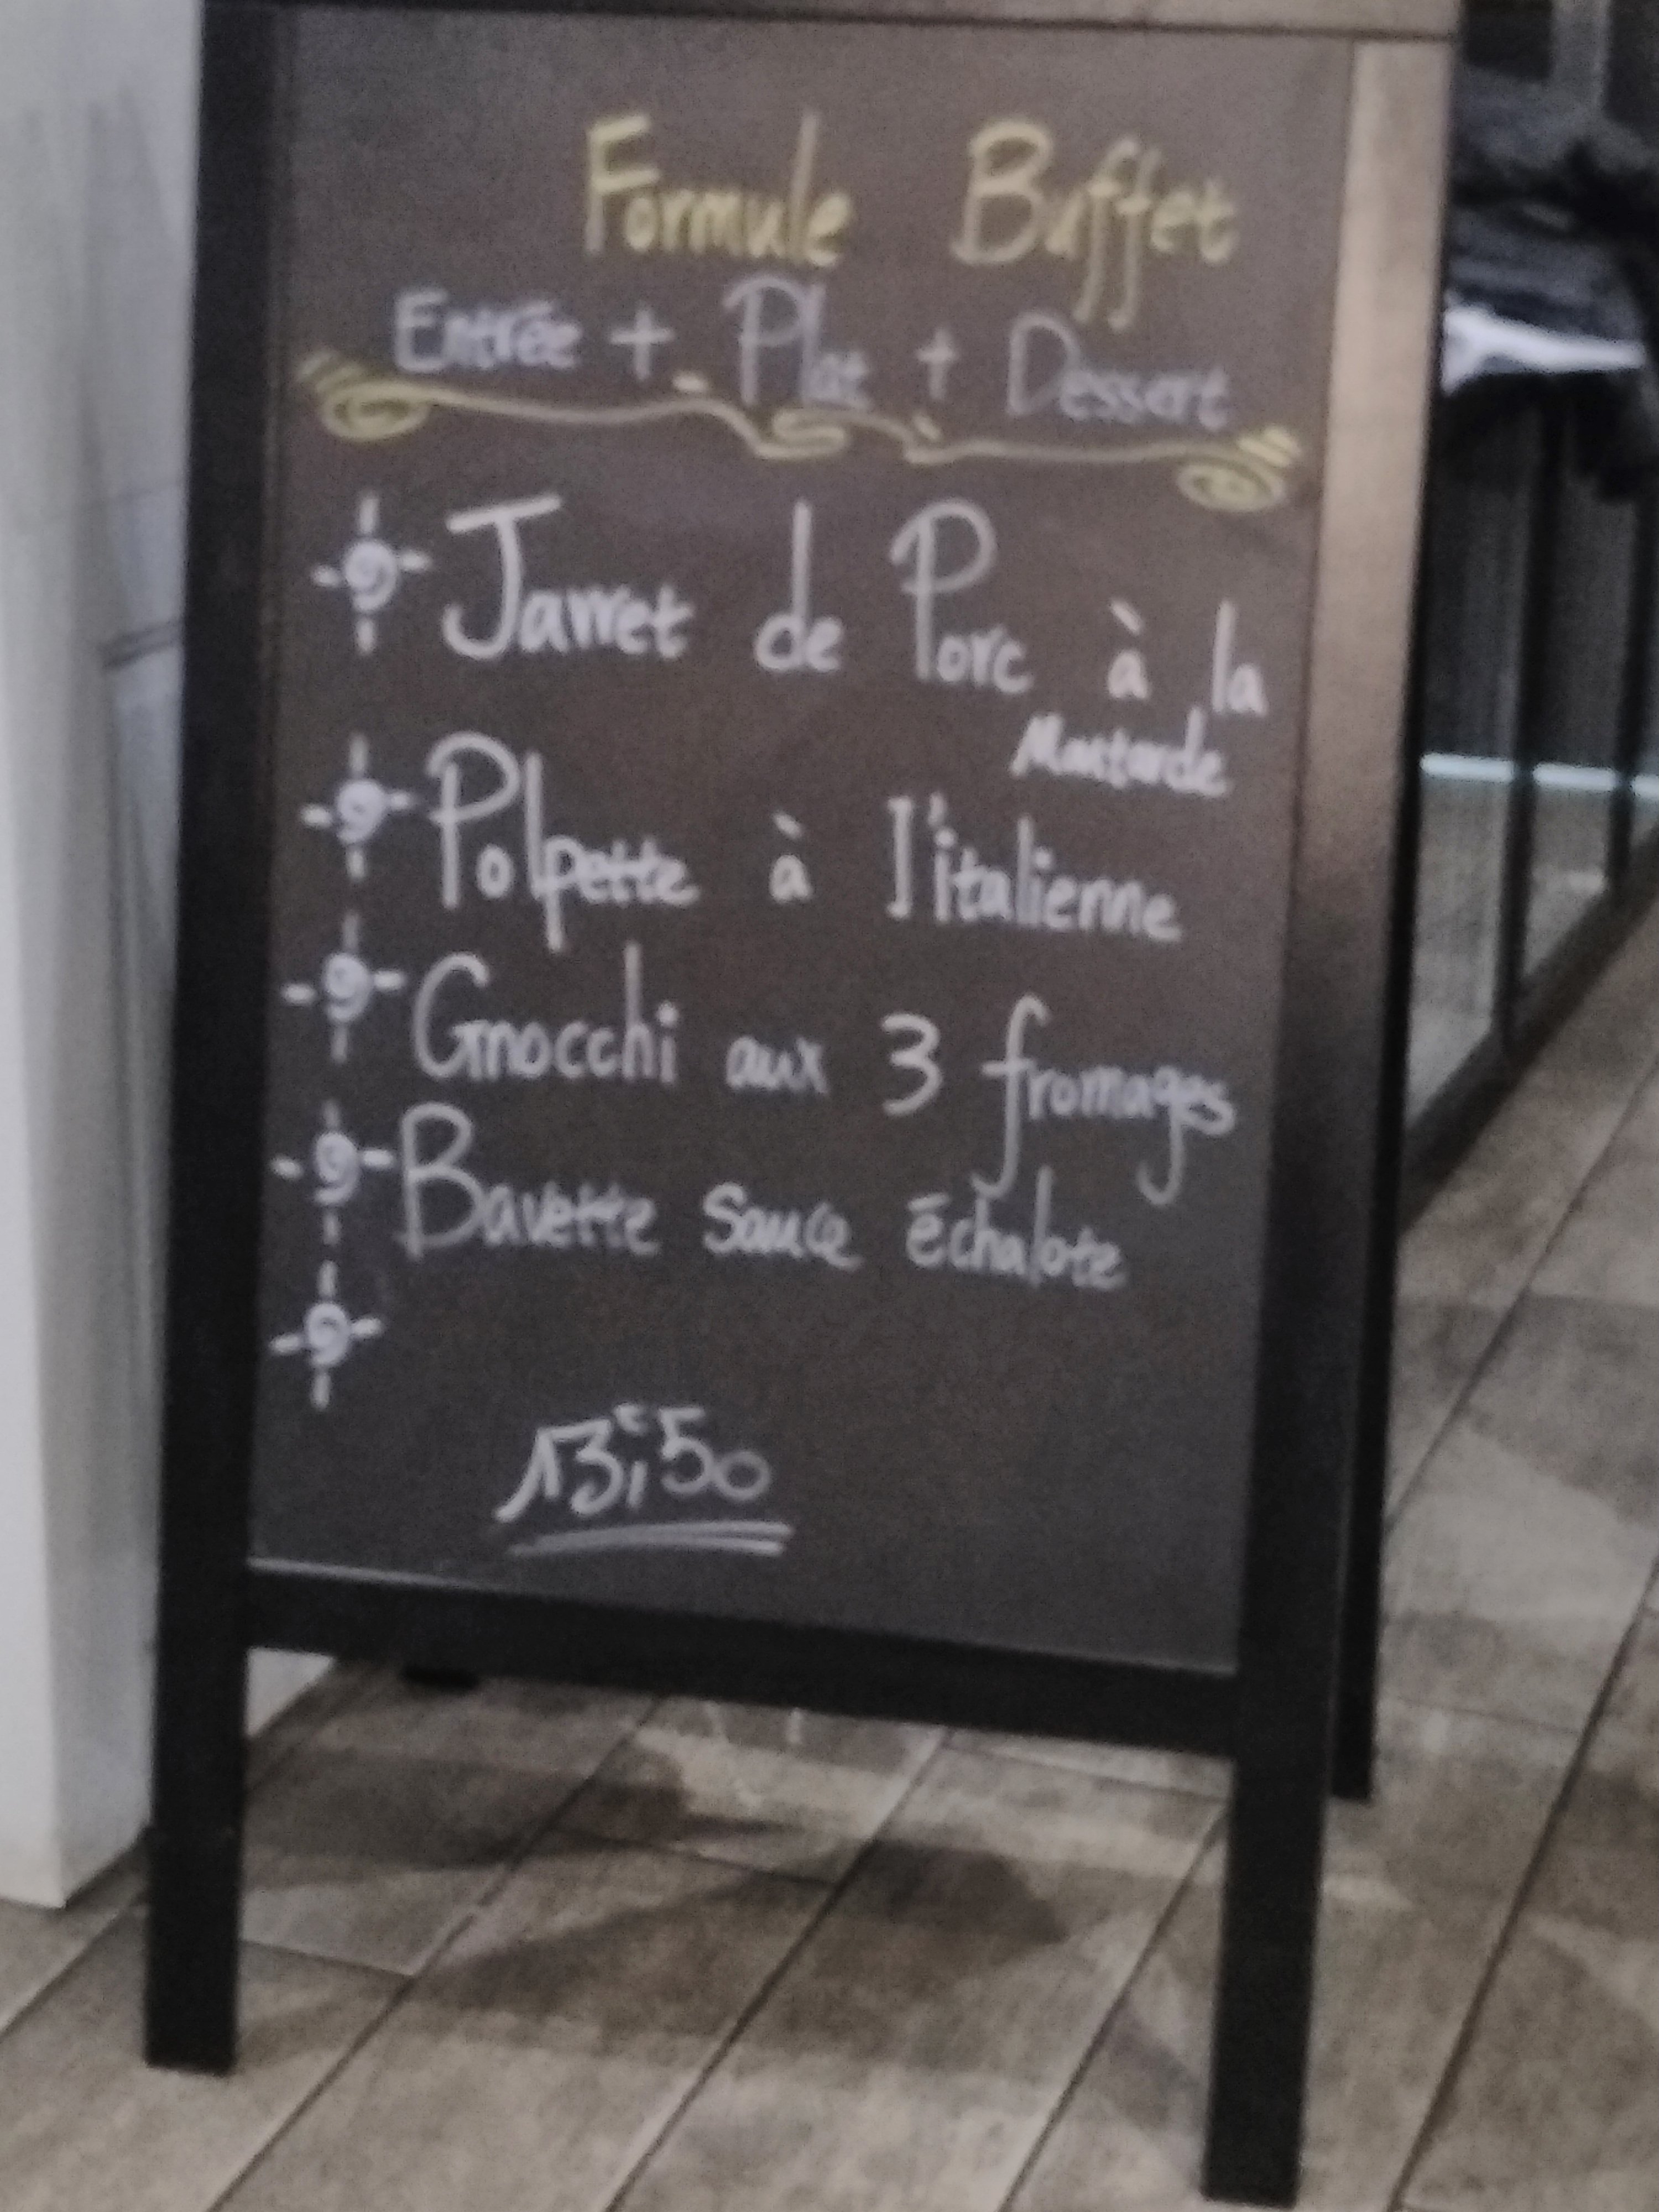 Formule Buffet
Entrée + Plat + Dessert
Jarret de Porc à la
Moutarde
Polpette à l'italienne
Gnocchi aux 3 fromages
Bavette Sauce échalote
13€,50